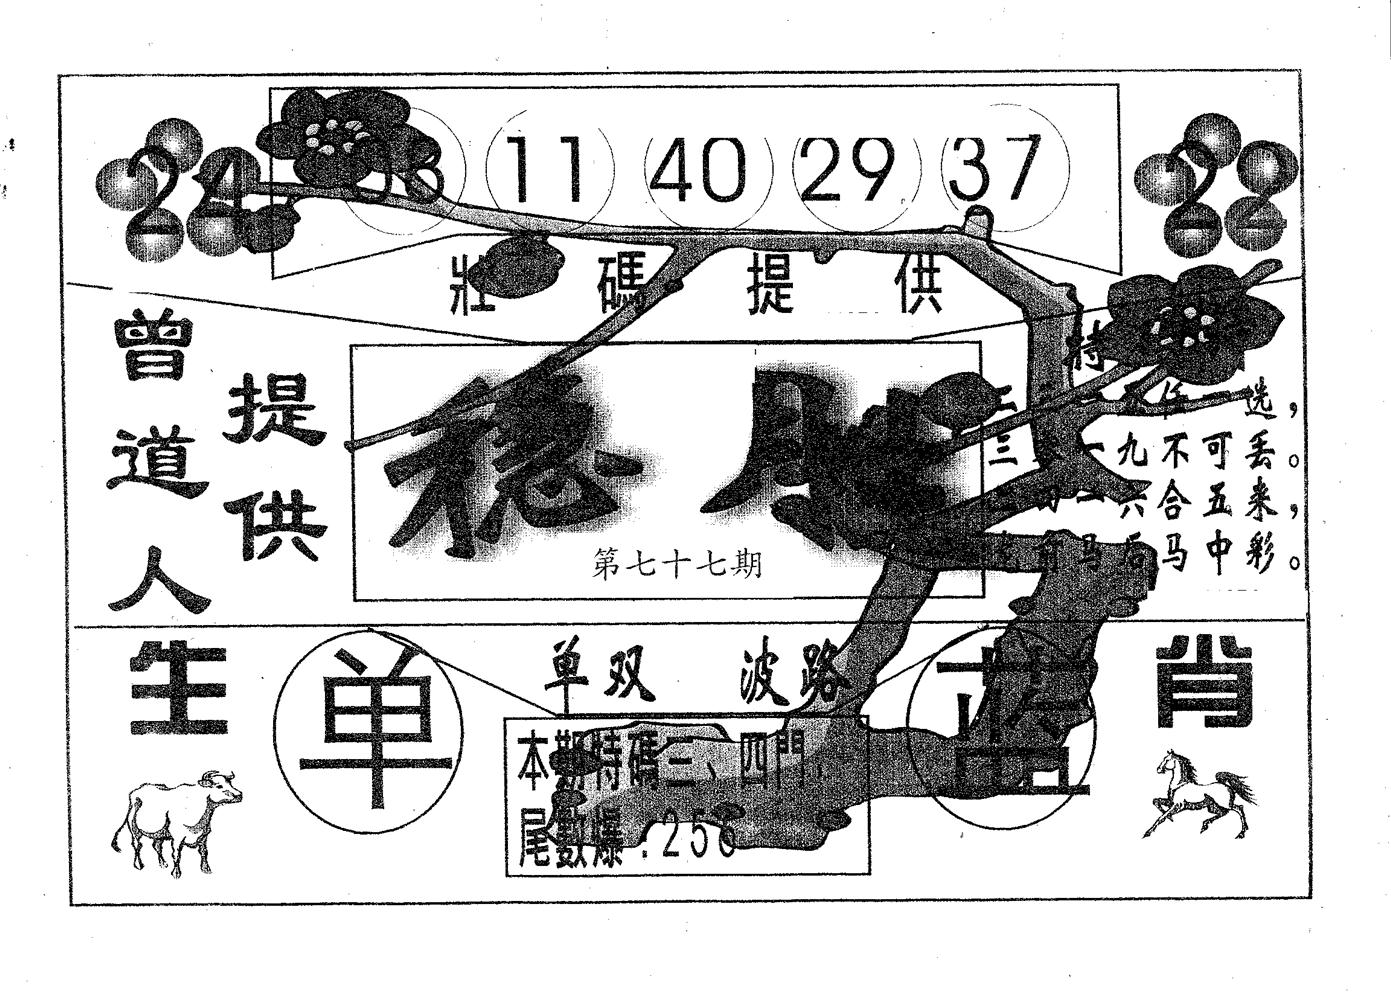 24
11 40 29 37
22
壯碼提供
曾道人
提供
稳胜
第七十七期
特
选，
三 一九不可丢。
一六合五来，
马后马中彩。
单双 波路
生
单
蓝
肖
本期特碼三、四門，
尾數爆：256